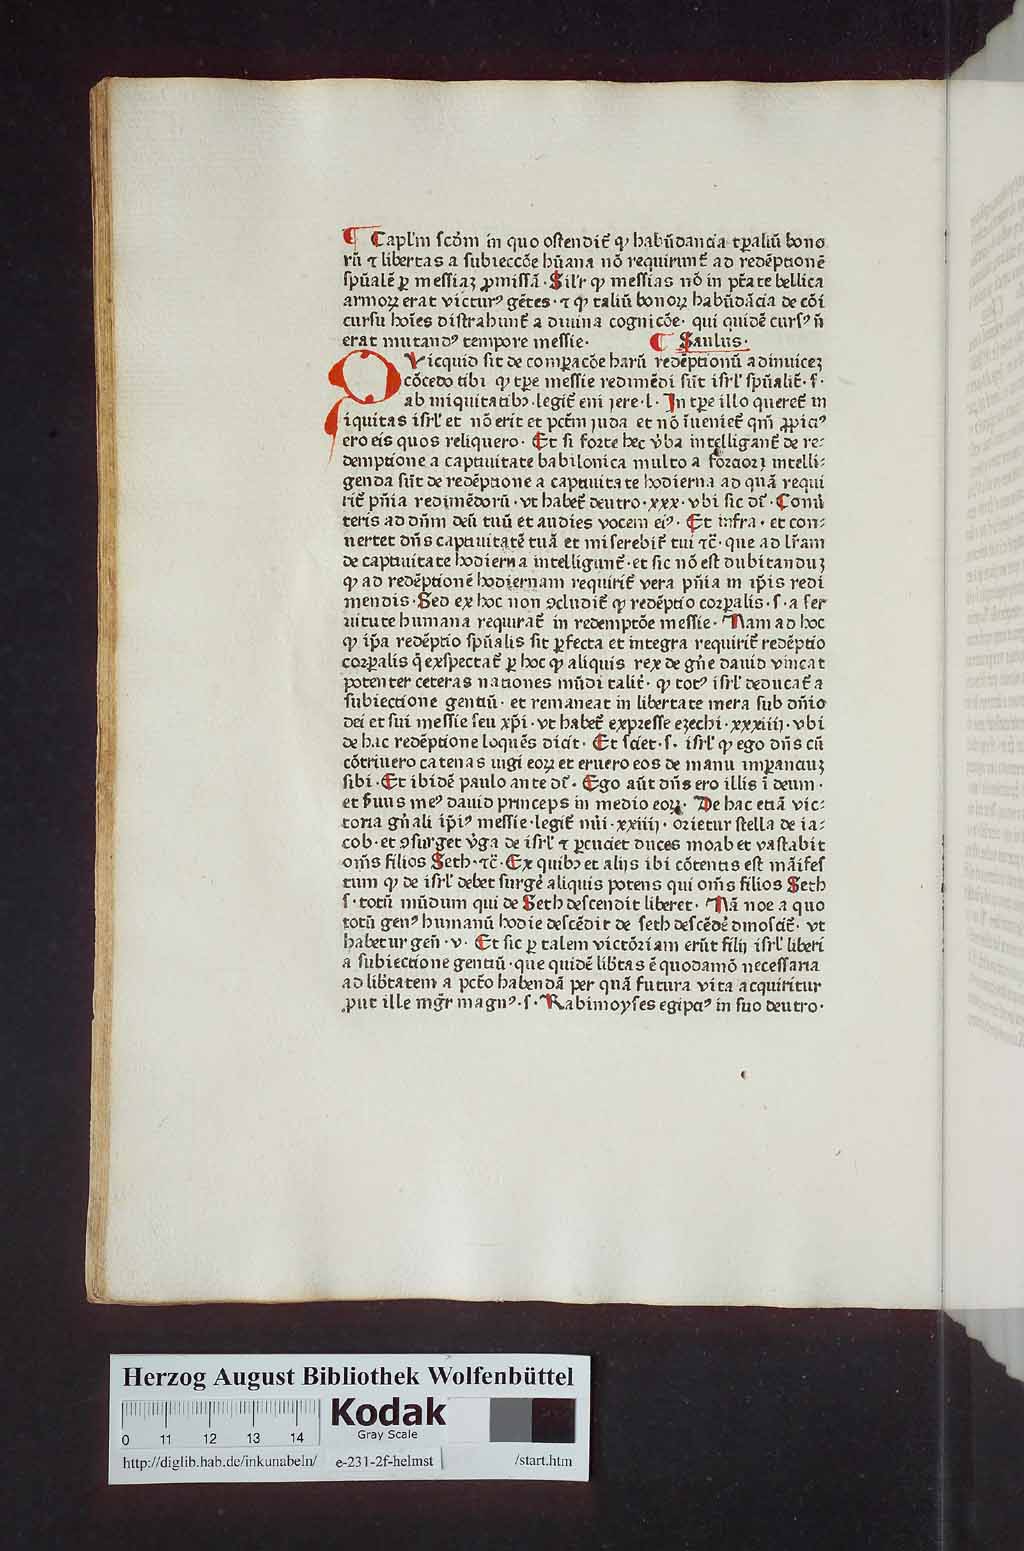 ¶ Capl'm scd'm in quo ostendit᷑ ꝙ habūdancia tꝑaliū bono
rū ⁊ libertas a subieccōe hūana nō requirunt᷑ ad redēptionē
spūalē ꝑ messiaꝫ ꝓmissā · Sil'r ꝙ messias nō in ptāte bellica
armoꝝ erat victurꝰ gētes · ⁊ ꝙ taliū bonoꝝ habūdācia de cōi
cursu hoīes distrahunt᷑ a diuina cognicōe · qui quidē cursꝰ ñ
erat mutandꝰ tempore messie · ¶ Saulus ·
QVicquid sit de comparacōe harū redēptionū adinuiceꝫ
cōcedo tibi ꝙ tꝑe messie redimēdi sūt isrl' spūalit᷑ · s ·
ab iniquitatibꝫ · legit᷑ eni jere · l · In tꝑe illo queret᷑ in
iquitas isrl' et nō erit et pctm̄ juda et nō īueniet᷑ qm̄ ꝓpiciꝰ
ero eis quos reliquero · Et si forte hec v̄ba intelligant᷑ de re-
demptione a captiuitate babilonica multo a forciori intelli-
genda sūt de redēptione a captiuitate hodierna ad quā requi
rit᷑ pn̄ia redimēdorū · vt habet᷑ deutro · xxx · vbi sic dr̄ · Conu̇
teris ad dn̄m deū tuū et audies vocem eiꝰ · Et infra · et con-
uertet dn̄s captiuitatē tuā et miserebit᷑ tui ⁊c̄ · que ad lr̄am
de captiuitate hodierna intelligunt᷑ · et sic nō est dubitanduꝫ
ꝙ ad redēptionē hodiernam requirit᷑ vera pn̄ia in ip̄is redi
mendis · Sed ex hoc non ꝯcludit᷑ ꝙ redēptio corꝑalis · s · a ser
uitute humana requirat᷑ in redemptōe messie · Nam ad hoc
ꝙ ip̄a redēptio spūalis sit ꝑfecta et integra requirit᷑ redēptio
corꝑalis q̄ exspectat᷑ ꝑ hoc ꝙ aliquis rex de gn̄e dauid vincat
potenter ceteras nationes mūdi talit᷑ · ꝙ totꝰ isrl' deducat᷑ a
subiectione gentiū · et remaneat in libertate mera sub dn̄io
dei et sui messie seu xp̄i · vt habet᷑ expresse ezechi · xxxiiij · vbi
de hac redēptione loquēs dicit · Et sciet · s · isrl' ꝙ ego dn̄s cū
cōtriuero catenas iugi eoꝝ et eruero eos de manu imꝑanciuꝫ
sibi · Et ibidē paulo ante dr̄ · Ego aūt dn̄s ero illis ī deum ·
et s̄uus meꝰ dauid princeps in medio eoꝝ · De hac etiā vic-
toria gn̄ali ip̄iꝰ messie · legit᷑ nūi · xxiiij · orietur stella de ia-
cob · et ꝯsurget v̄ga de isrl' ⁊ ꝑcuciet duces moab et vastabit
om̄s filios Seth · ⁊c̄ · Ex quibꝫ et alijs ibi cōtentis est māifes
tum ꝙ de isrl' debet surgē aliquis potens qui om̄s filios Seth
s · totū mūdum qui de Seth descendit liberet · Nā noe a quo
totū genꝰ humanū hodie descēdit de seth descēdē dinoscit᷑ · vt
habetur gen̄ · v · Et sic ꝑ talem victōriam erūt filij isrl' liberi
a subiectione gentiū · que quidē lib̄tas ē quodamō necessaria
ad lib̄tatem a pctō habendā per quā futura vita acquiritur
ꝓut ille mgr̄ magnꝰ · s · Rabimoyses egipciꝰ in suo deutro ·
Herzog August Bibliothek Wolfenbüttel
Kodak
Gray Scale
0 11 12 13 14
http://diglib.hab.de/inkunabeln/ e-231-2f-helmst /start.htm